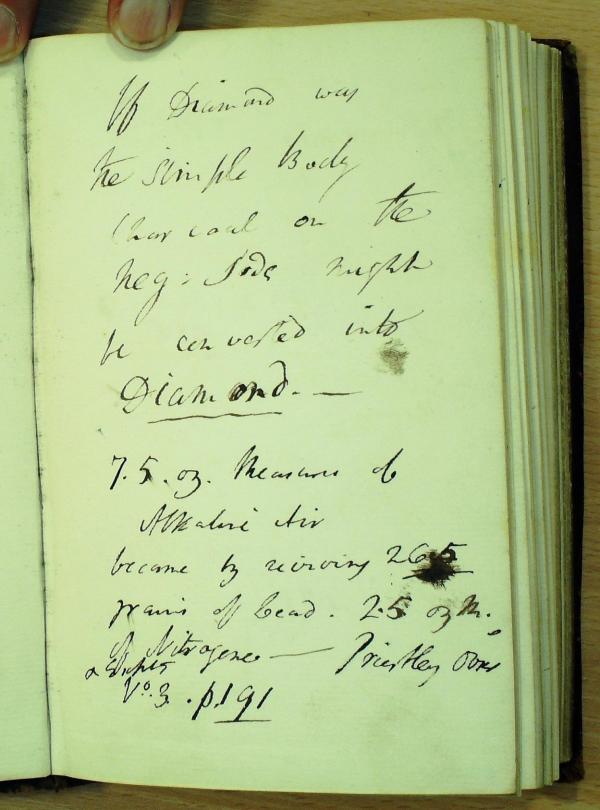 If Diamond was
the simple Body
Charcoal on the
neg: side might
be converted into
Diamond. —
7.5. oz. Measures of
Alkaline Air
became by reviving 26 5
grains of Lead. 2.5 oz M.
of Nitrogene — Priestley
Vo. 3. p. 191